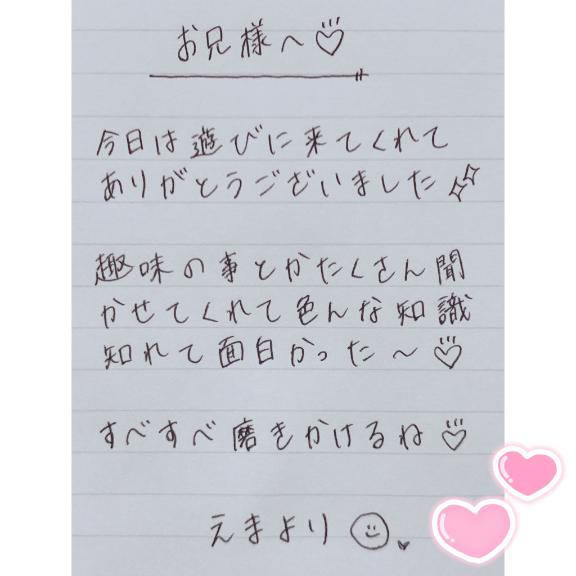 お兄様へ♡
今日は遊びに来てくれて
ありがとうございました✨
趣味の事とかたくさん聞
かせてくれて色んな知識
知れて面白かった〜♡
すべすべ磨きかけるね♡
えまより